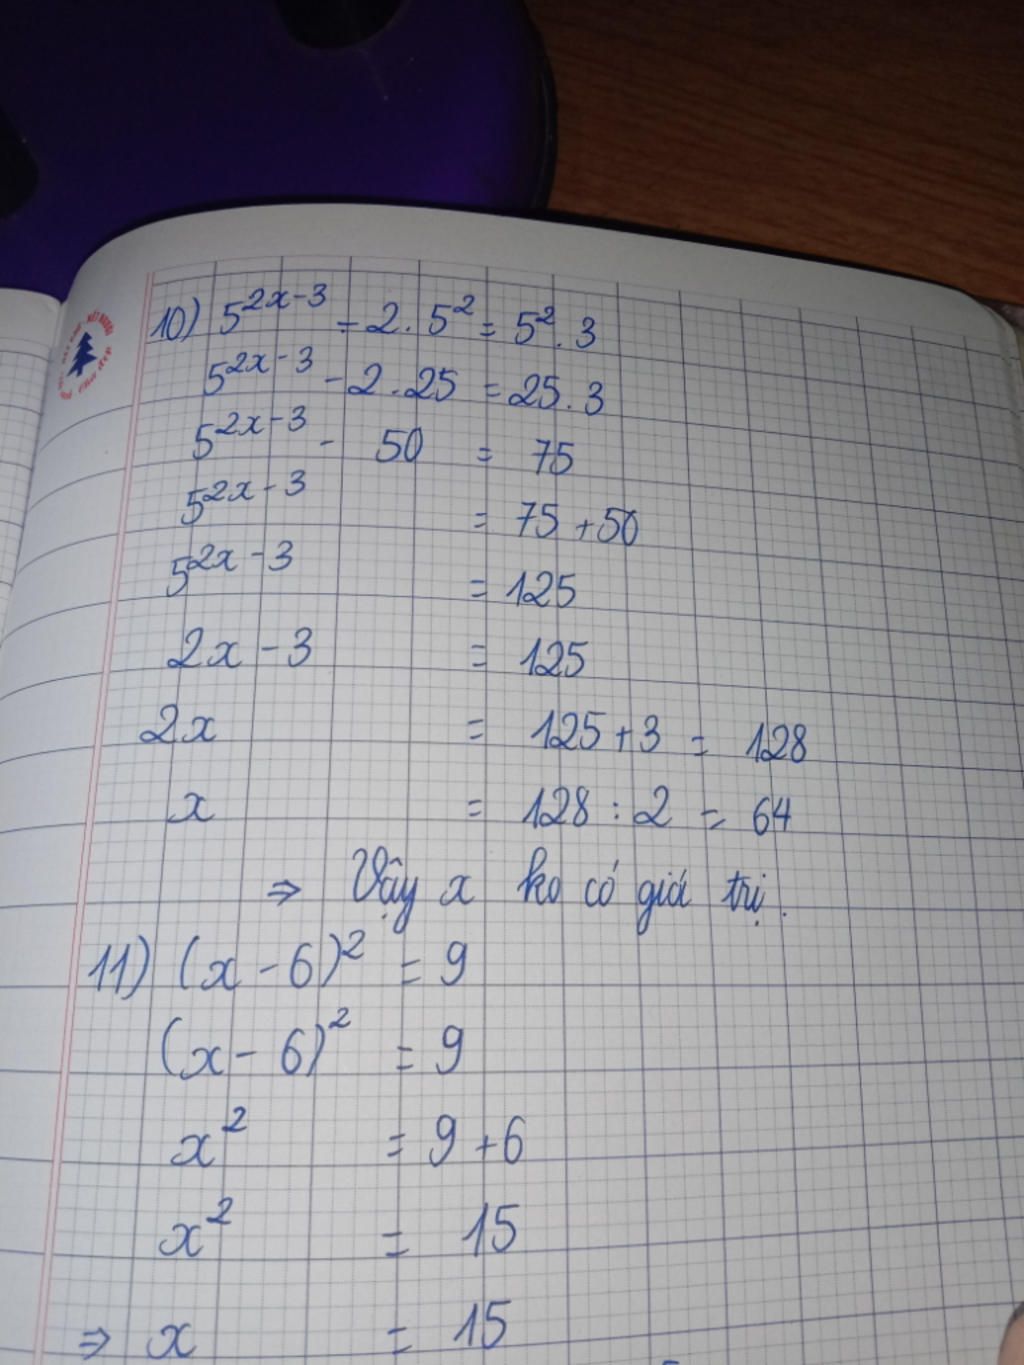 10) 5^{2x-3} - 2.5^2 = 5^2.3
5^{2x-3} - 2.25 = 25.3
5^{2x-3} - 50 = 75
5^{2x-3} = 75 + 50
5^{2x-3} = 125
2x - 3 = 125
2x = 125 + 3 = 128
x = 128 : 2 = 64
⇒ Vậy x ko có giá trị.
11) (x - 6)^2 = 9
(x - 6)^2 = 9
x^2 = 9 + 6
x^2 = 15
⇒ x = 15